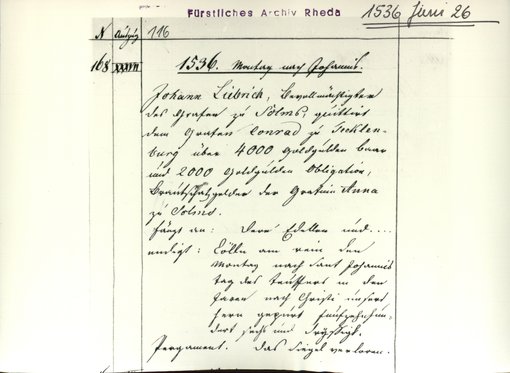 Fürstliches Archiv Rheda
1536 Juni 26
N Auszug 116
168 1536. Montag nach Johannis.
Johann Liebrich, Bevollmächtigter
des Grafen zu Solms, quittirt
dem Grafen Conrad zu Tecklen-
burg über 4000 Goldgulden baar
und 2000 Goldgulden Obligation,
Brautschatzgelder der Gräfinn Anna
zu Solms.
fängt an: Dere Edellen und....
endigt: Cölln am rein den
Montag nach sant Johannis
tag des teuffers in den
Jaren nach Christi unsers
hern gepurt funfzehnhun-
dert sechs und dryssigk.
Pergament. das Siegel verloren.